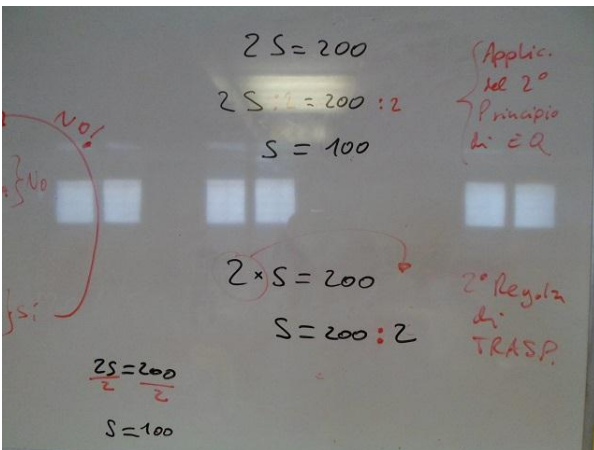 2 S = 200
2 S :2 = 200 :2
S = 100
Applic.
del 2°
Principio
di EQ
No!
} No
} Sì
2 × S = 200
S = 200 : 2
2° Regola
di
TRASP.
2S = 200
2 2
S = 100